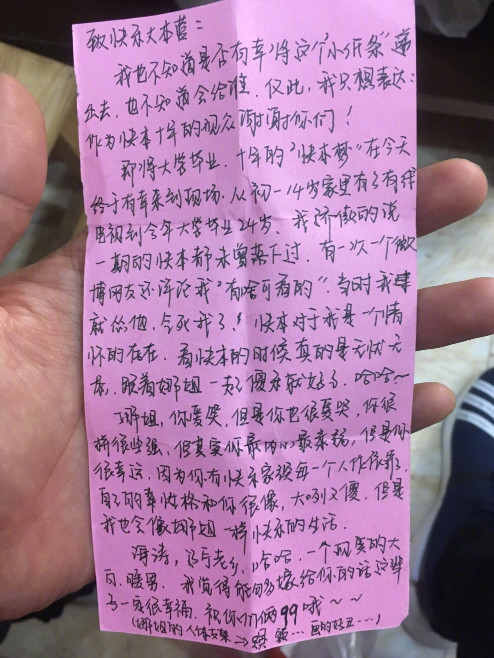 致快乐大本营：
我也不知道是否有幸将这个"小纸条"递
出去，也不知道会给谁，仅此，我只想表达：
作为快本十年的观众谢谢你们！
即将大学毕业，十年的"快本梦"在今天
终于有幸来到现场，从初一14岁家里有了有线
电视到今年大学毕业24岁，我骄傲的说
一期的快本都未曾落下过，有一次一个微
博网友还评论我"有啥可看的"，当时我肆
就怂他，气死我了！快本对于我是一个情
怀的存在，看快本的时候真的是无忧无
虑，跟着娜姐一起傻乐就好了，哈哈～
娜姐，你爱哭，但是你也很爱笑，你很
拼很坚强，但其实你最内心最柔弱，但是你
很幸运，因为你有快乐家族每一个人作依靠，
我的性格和你很像，大咧又傻，但是
我也会像娜姐一样快乐的生活。
海涛，老乡，哈哈，一个现实的大
白，暖男，我觉得能够嫁给你的话这辈
一定很幸福，祝你们俩99哦～～
(娜姐的人体支架→ 画的好丑…)